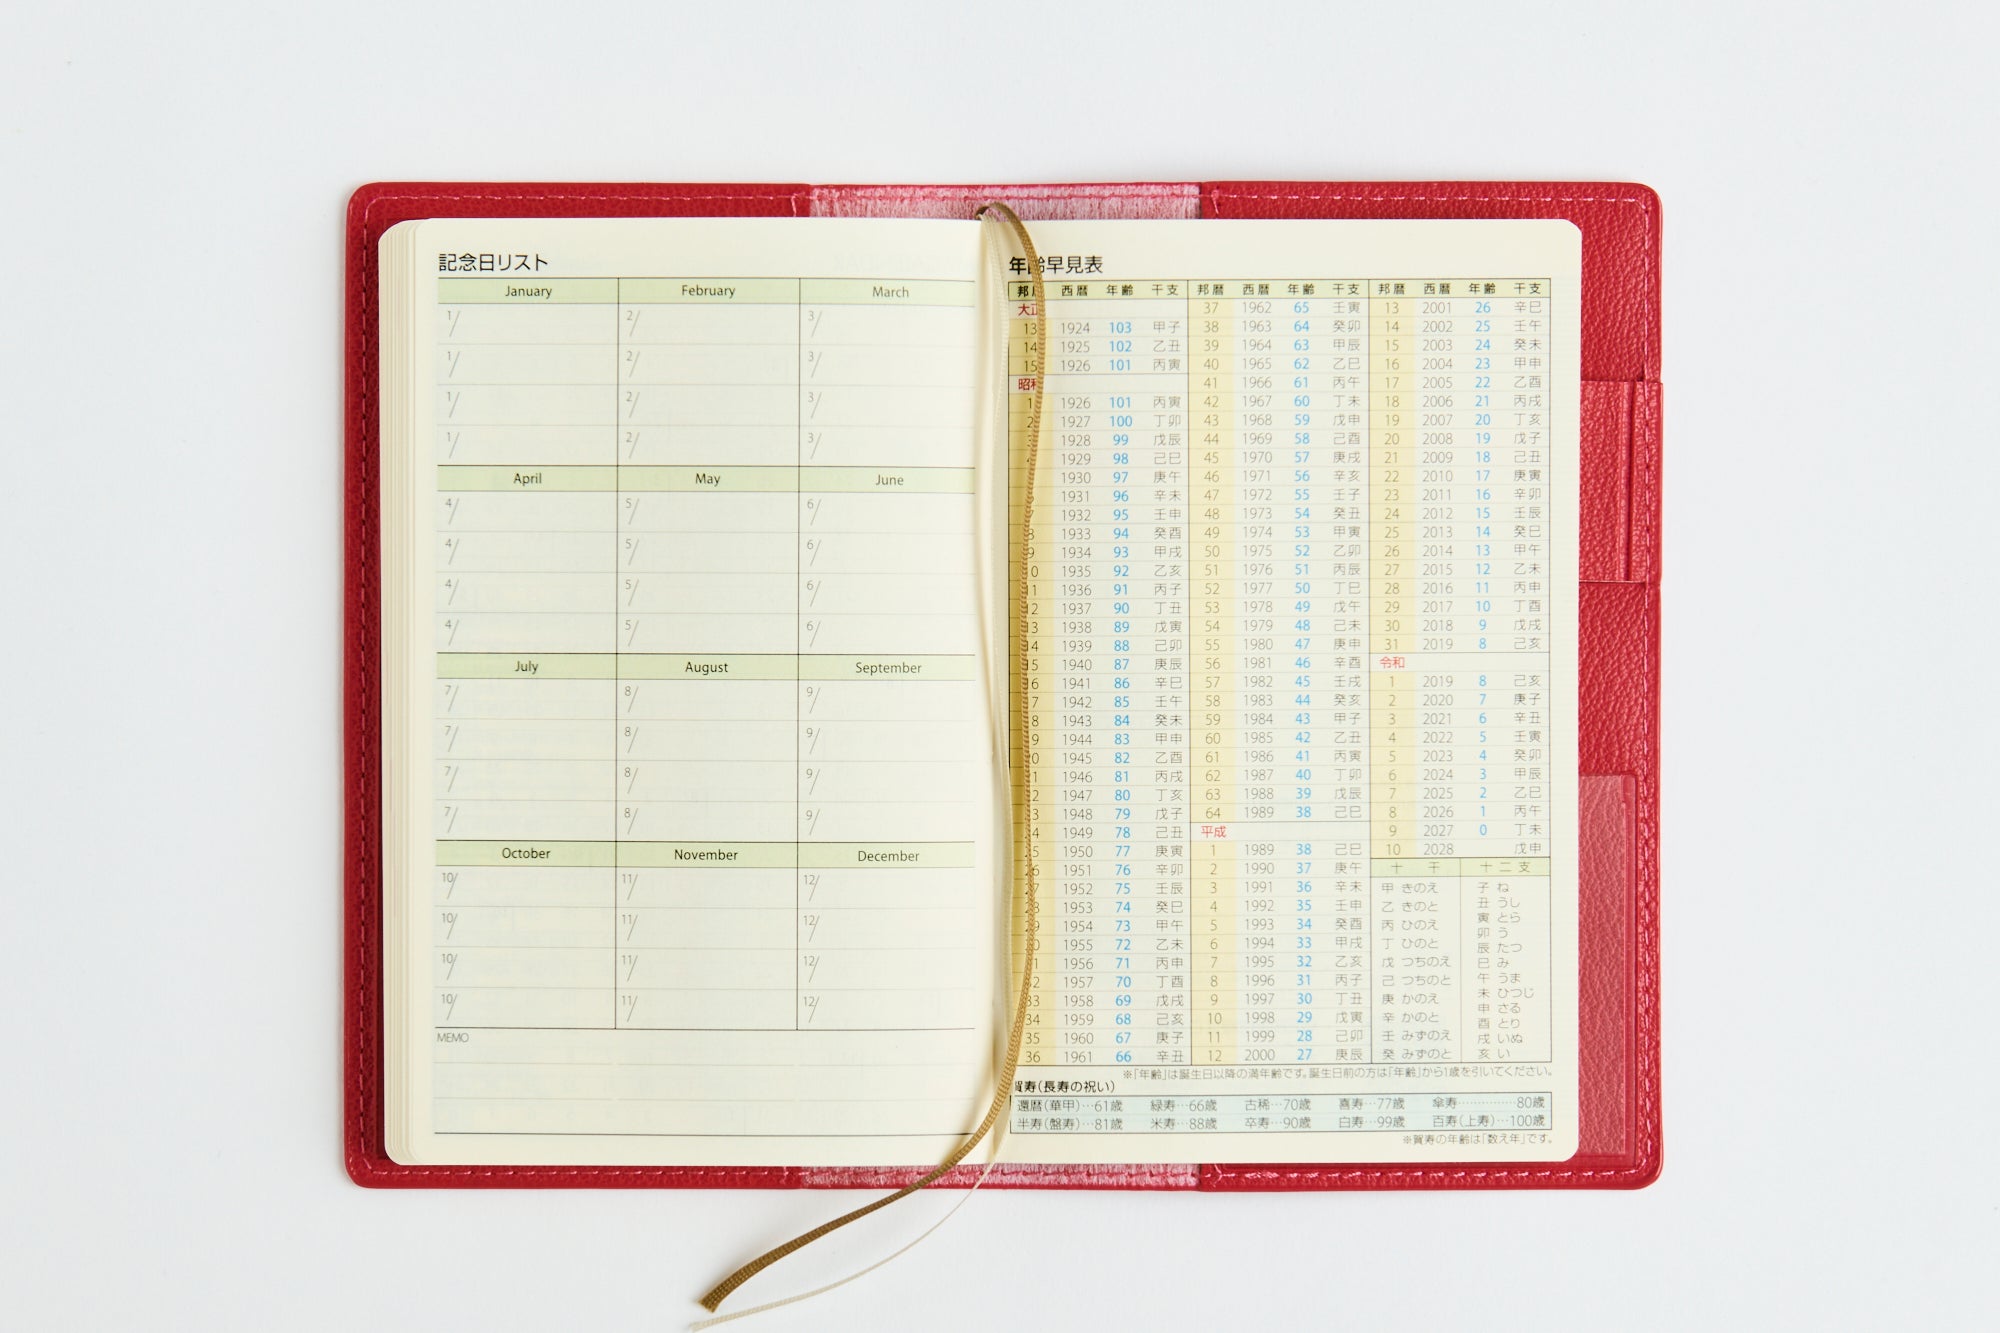 記念日リスト
January February March
1/ 2/ 3/
1/ 2/ 3/
1/ 2/ 3/
1/ 2/ 3/
April May June
4/ 5/ 6/
4/ 5/ 6/
4/ 5/ 6/
4/ 5/ 6/
July August September
7/ 8/ 9/
7/ 8/ 9/
7/ 8/ 9/
7/ 8/ 9/
October November December
10/ 11/ 12/
10/ 11/ 12/
10/ 11/ 12/
10/ 11/ 12/
MEMO
年齢早見表
邦暦 西暦 年齢 干支
大正
13 1924 103 甲子
14 1925 102 乙丑
15 1926 101 丙寅
昭和
1 1926 101 丙寅
2 1927 100 丁卯
1928 99 戊辰
1929 98 己巳
1930 97 庚午
1931 96 辛未
1932 95 壬申
8 1933 94 癸酉
9 1934 93 甲戌
0 1935 92 乙亥
1 1936 91 丙子
12 1937 90 丁丑
13 1938 89 戊寅
14 1939 88 己卯
15 1940 87 庚辰
6 1941 86 辛巳
7 1942 85 壬午
8 1943 84 癸未
9 1944 83 甲申
0 1945 82 乙酉
1 1946 81 丙戌
2 1947 80 丁亥
3 1948 79 戊子
4 1949 78 己丑
5 1950 77 庚寅
26 1951 76 辛卯
27 1952 75 壬辰
28 1953 74 癸巳
29 1954 73 甲午
0 1955 72 乙未
1 1956 71 丙申
32 1957 70 丁酉
33 1958 69 戊戌
34 1959 68 己亥
35 1960 67 庚子
36 1961 66 辛丑
邦暦 西暦 年齢 干支
37 1962 65 壬寅
38 1963 64 癸卯
39 1964 63 甲辰
40 1965 62 乙巳
41 1966 61 丙午
42 1967 60 丁未
43 1968 59 戊申
44 1969 58 己酉
45 1970 57 庚戌
46 1971 56 辛亥
47 1972 55 壬子
48 1973 54 癸丑
49 1974 53 甲寅
50 1975 52 乙卯
51 1976 51 丙辰
52 1977 50 丁巳
53 1978 49 戊午
54 1979 48 己未
55 1980 47 庚申
56 1981 46 辛酉
57 1982 45 壬戌
58 1983 44 癸亥
59 1984 43 甲子
60 1985 42 乙丑
61 1986 41 丙寅
62 1987 40 丁卯
63 1988 39 戊辰
64 1989 38 己巳
平成
1 1989 38 己巳
2 1990 37 庚午
3 1991 36 辛未
4 1992 35 壬申
5 1993 34 癸酉
6 1994 33 甲戌
7 1995 32 乙亥
8 1996 31 丙子
9 1997 30 丁丑
10 1998 29 戊寅
11 1999 28 己卯
12 2000 27 庚辰
邦暦 西暦 年齢 干支
13 2001 26 辛巳
14 2002 25 壬午
15 2003 24 癸未
16 2004 23 甲申
17 2005 22 乙酉
18 2006 21 丙戌
19 2007 20 丁亥
20 2008 19 戊子
21 2009 18 己丑
22 2010 17 庚寅
23 2011 16 辛卯
24 2012 15 壬辰
25 2013 14 癸巳
26 2014 13 甲午
27 2015 12 乙未
28 2016 11 丙申
29 2017 10 丁酉
30 2018 9 戊戌
31 2019 8 己亥
令和
1 2019 8 己亥
2 2020 7 庚子
3 2021 6 辛丑
4 2022 5 壬寅
5 2023 4 癸卯
6 2024 3 甲辰
7 2025 2 乙巳
8 2026 1 丙午
9 2027 0 丁未
10 2028 戊申
十干
甲 きのえ
乙 きのと
丙 ひのえ
丁 ひのと
戊 つちのえ
己 つちのと
庚 かのえ
辛 かのと
壬 みずのえ
癸 みずのと
十二支
子 ね
丑 うし
寅 とら
卯 う
辰 たつ
巳 み
午 うま
未 ひつじ
申 さる
酉 とり
戌 いぬ
亥 い
※「年齢」は誕生日以降の満年齢です。誕生日前の方は「年齢」から1歳を引いてください。
賀寿(長寿の祝い)
還暦(華甲)…61歳 緑寿…66歳 古稀…70歳 喜寿…77歳 傘寿…………80歳
半寿(盤寿)…81歳 米寿…88歳 卒寿…90歳 白寿…99歳 百寿(上寿)…100歳
※賀寿の年齢は「数え年」です。